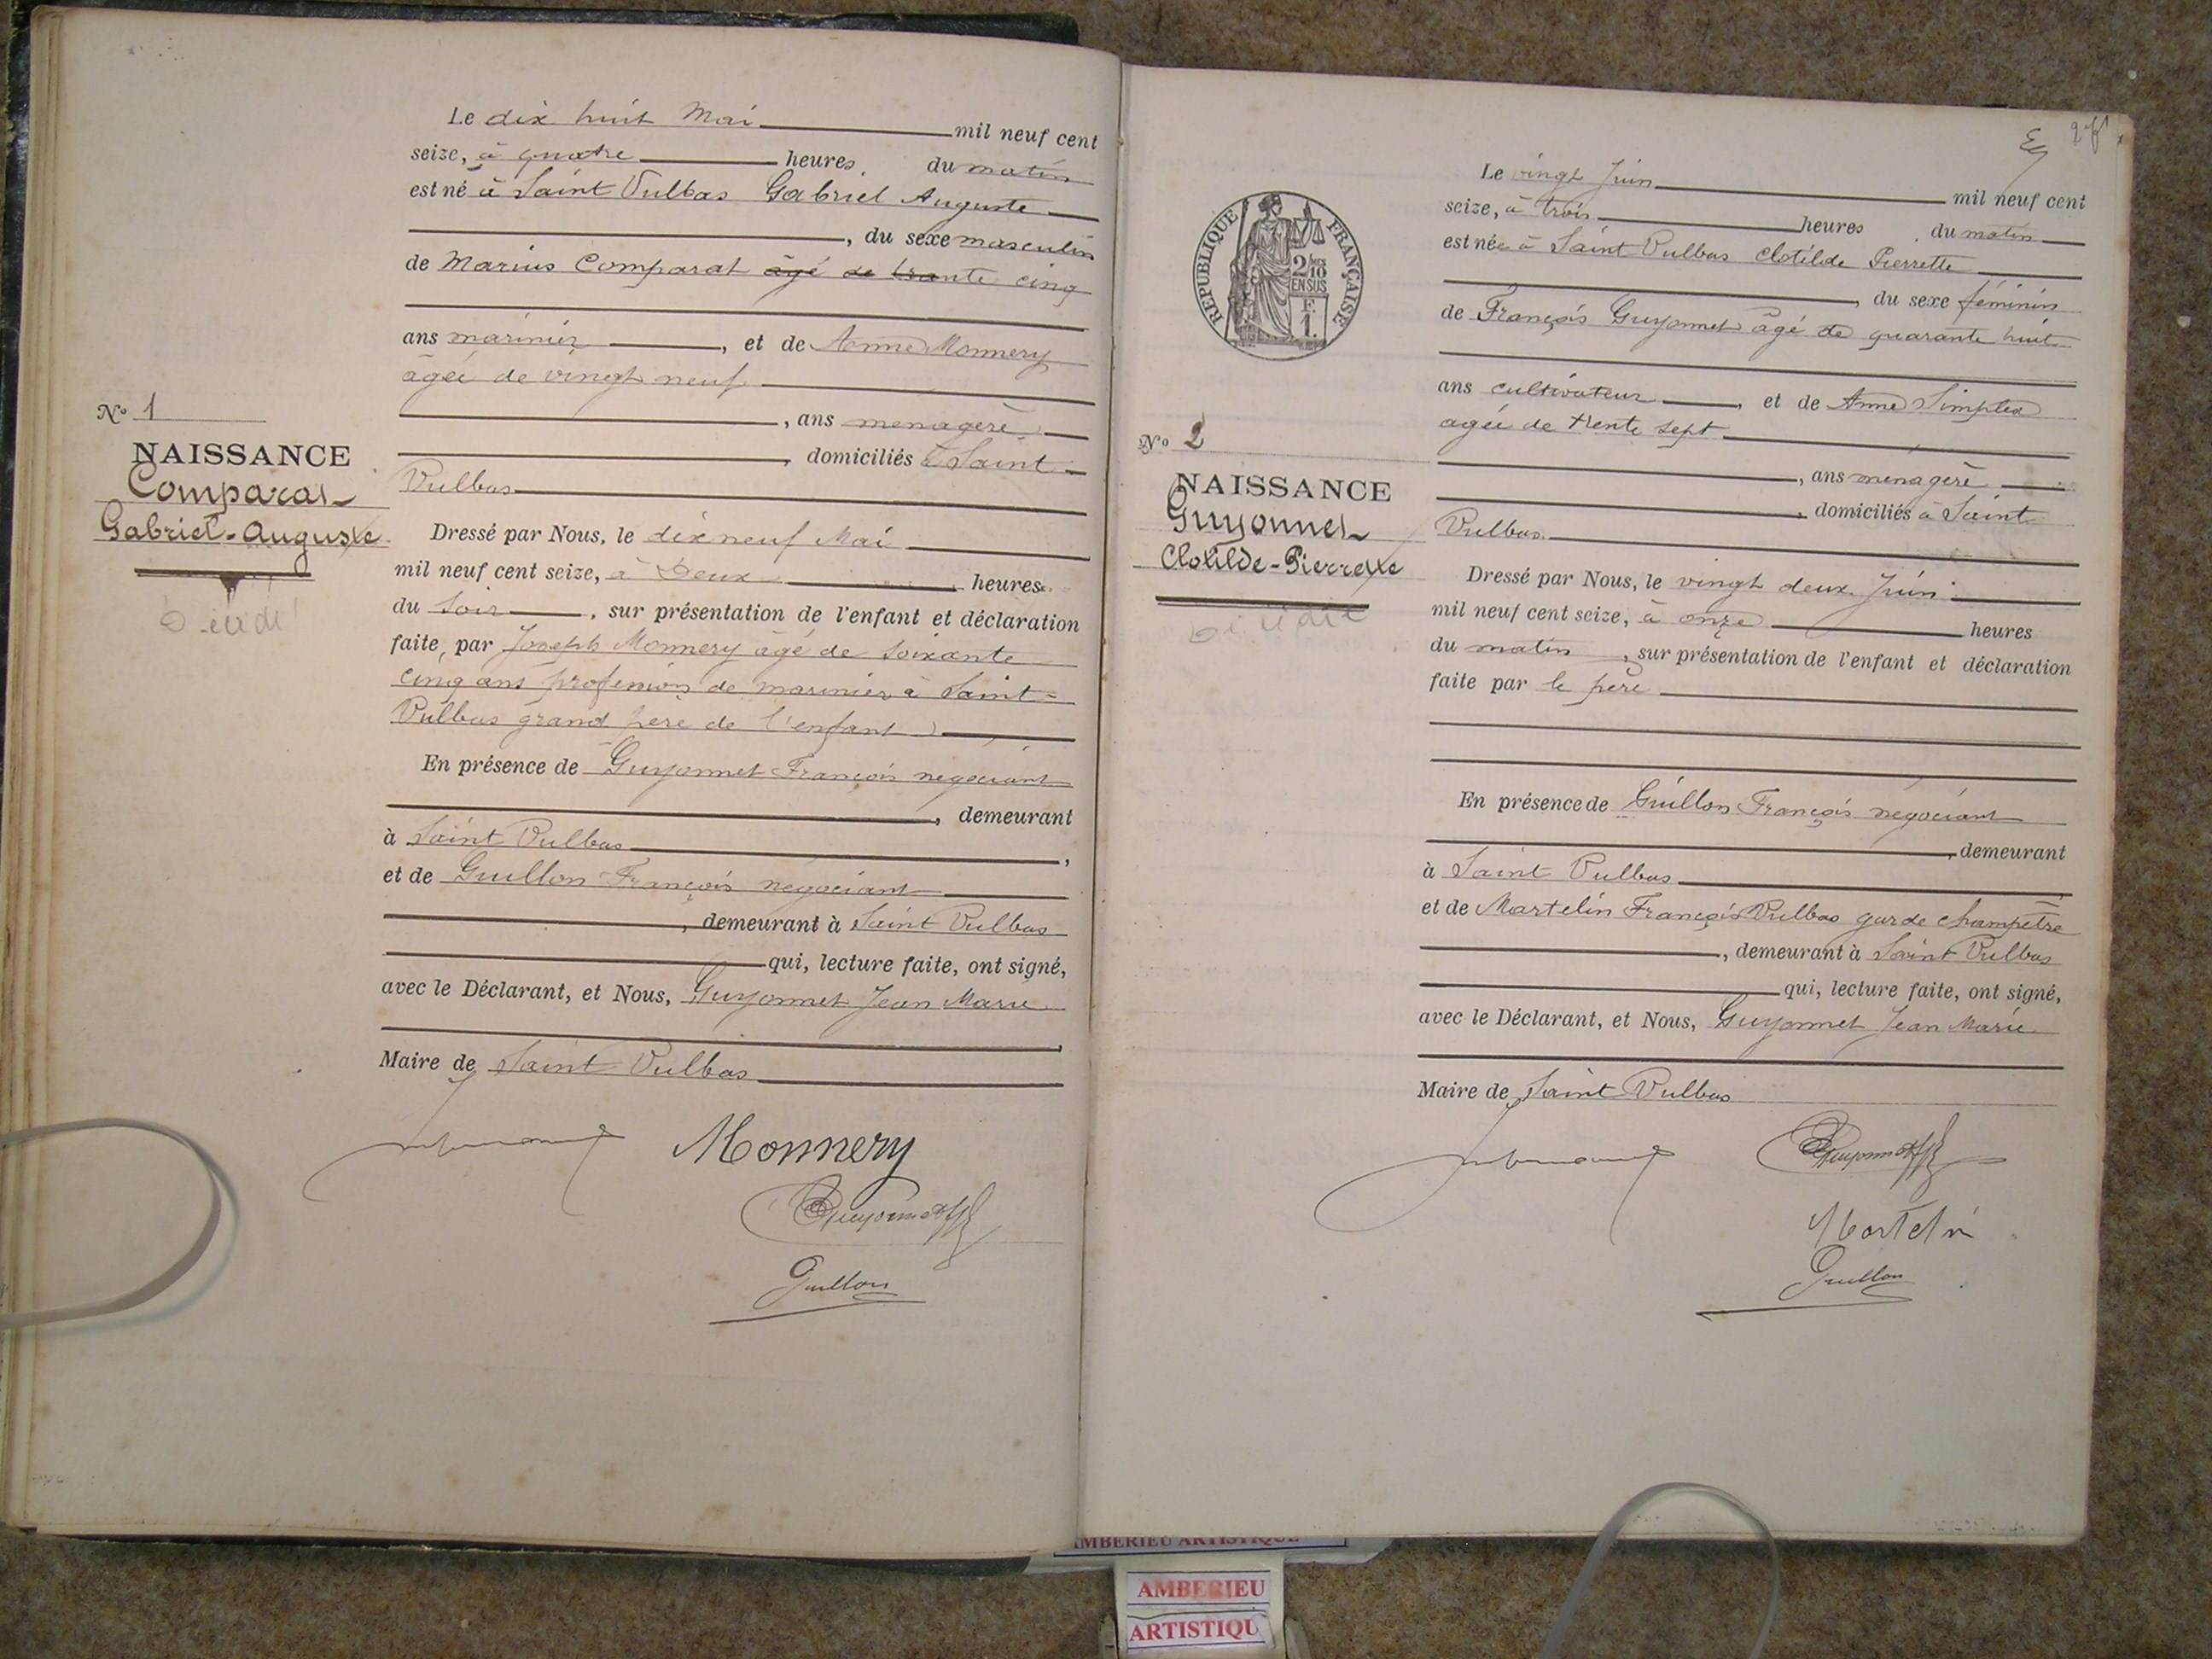 Le dix huit Mai mil neuf cent
seize, à quatre heures du matin
est né à Saint Vulbas Gabriel Auguste
, du sexe masculin
de Marius Comparat âgé de trente cinq
ans marinier, et de Anne Monnery
âgée de vingt neuf
, ans menagère
, domiciliés à Saint
Vulbas
Nº 1
NAISSANCE
Comparat
Gabriel-Auguste
Dressé par Nous, le dix neuf Mai
mil neuf cent seize, à Deux heures
du Soir, sur présentation de l'enfant et déclaration
faite, par Joseph Monnery âgé de soixante
cinq ans profession de marinier à Saint-
Vulbas grand père de l'enfant
En présence de Guyonnet François negociant
, demeurant
à Saint Vulbas,
et de Guillon François négociant
, demeurant à Saint Vulbas
qui, lecture faite, ont signé,
avec le Déclarant, et Nous, Guyonnet Jean Marie
Maire de Saint Vulbas
Monnery
Guyonnet
Guillon
RÉPUBLIQUE FRANÇAISE
2/10
EN SUS
F.
1.
Le vingt Juin mil neuf cent
seize, à trois heures du matin
est née à Saint Vulbas Clotilde Pierrette
, du sexe féminin
de François Guyonnet âgé de quarante huit
ans cultivateur, et de Anne Simplex
agée de trente sept
, ans ménagère
, domiciliés à Saint
Vulbas
Nº 2
NAISSANCE
Guyonnet
Clotilde-Pierrette
Dressé par Nous, le vingt deux Juin
mil neuf cent seize, à onze heures
du matin, sur présentation de l'enfant et déclaration
faite par le père
En présence de Guillon François négociant
, demeurant
à Saint Vulbas
et de Martelin François Vulbas garde champêtre
, demeurant à Saint Vulbas
qui, lecture faite, ont signé,
avec le Déclarant, et Nous, Guyonnet Jean Marie
Maire de Saint Vulbas
Guyonnet
Martelin
Guillon
AMBERIEU ARTISTIQUE
AMBERIEU
ARTISTIQU